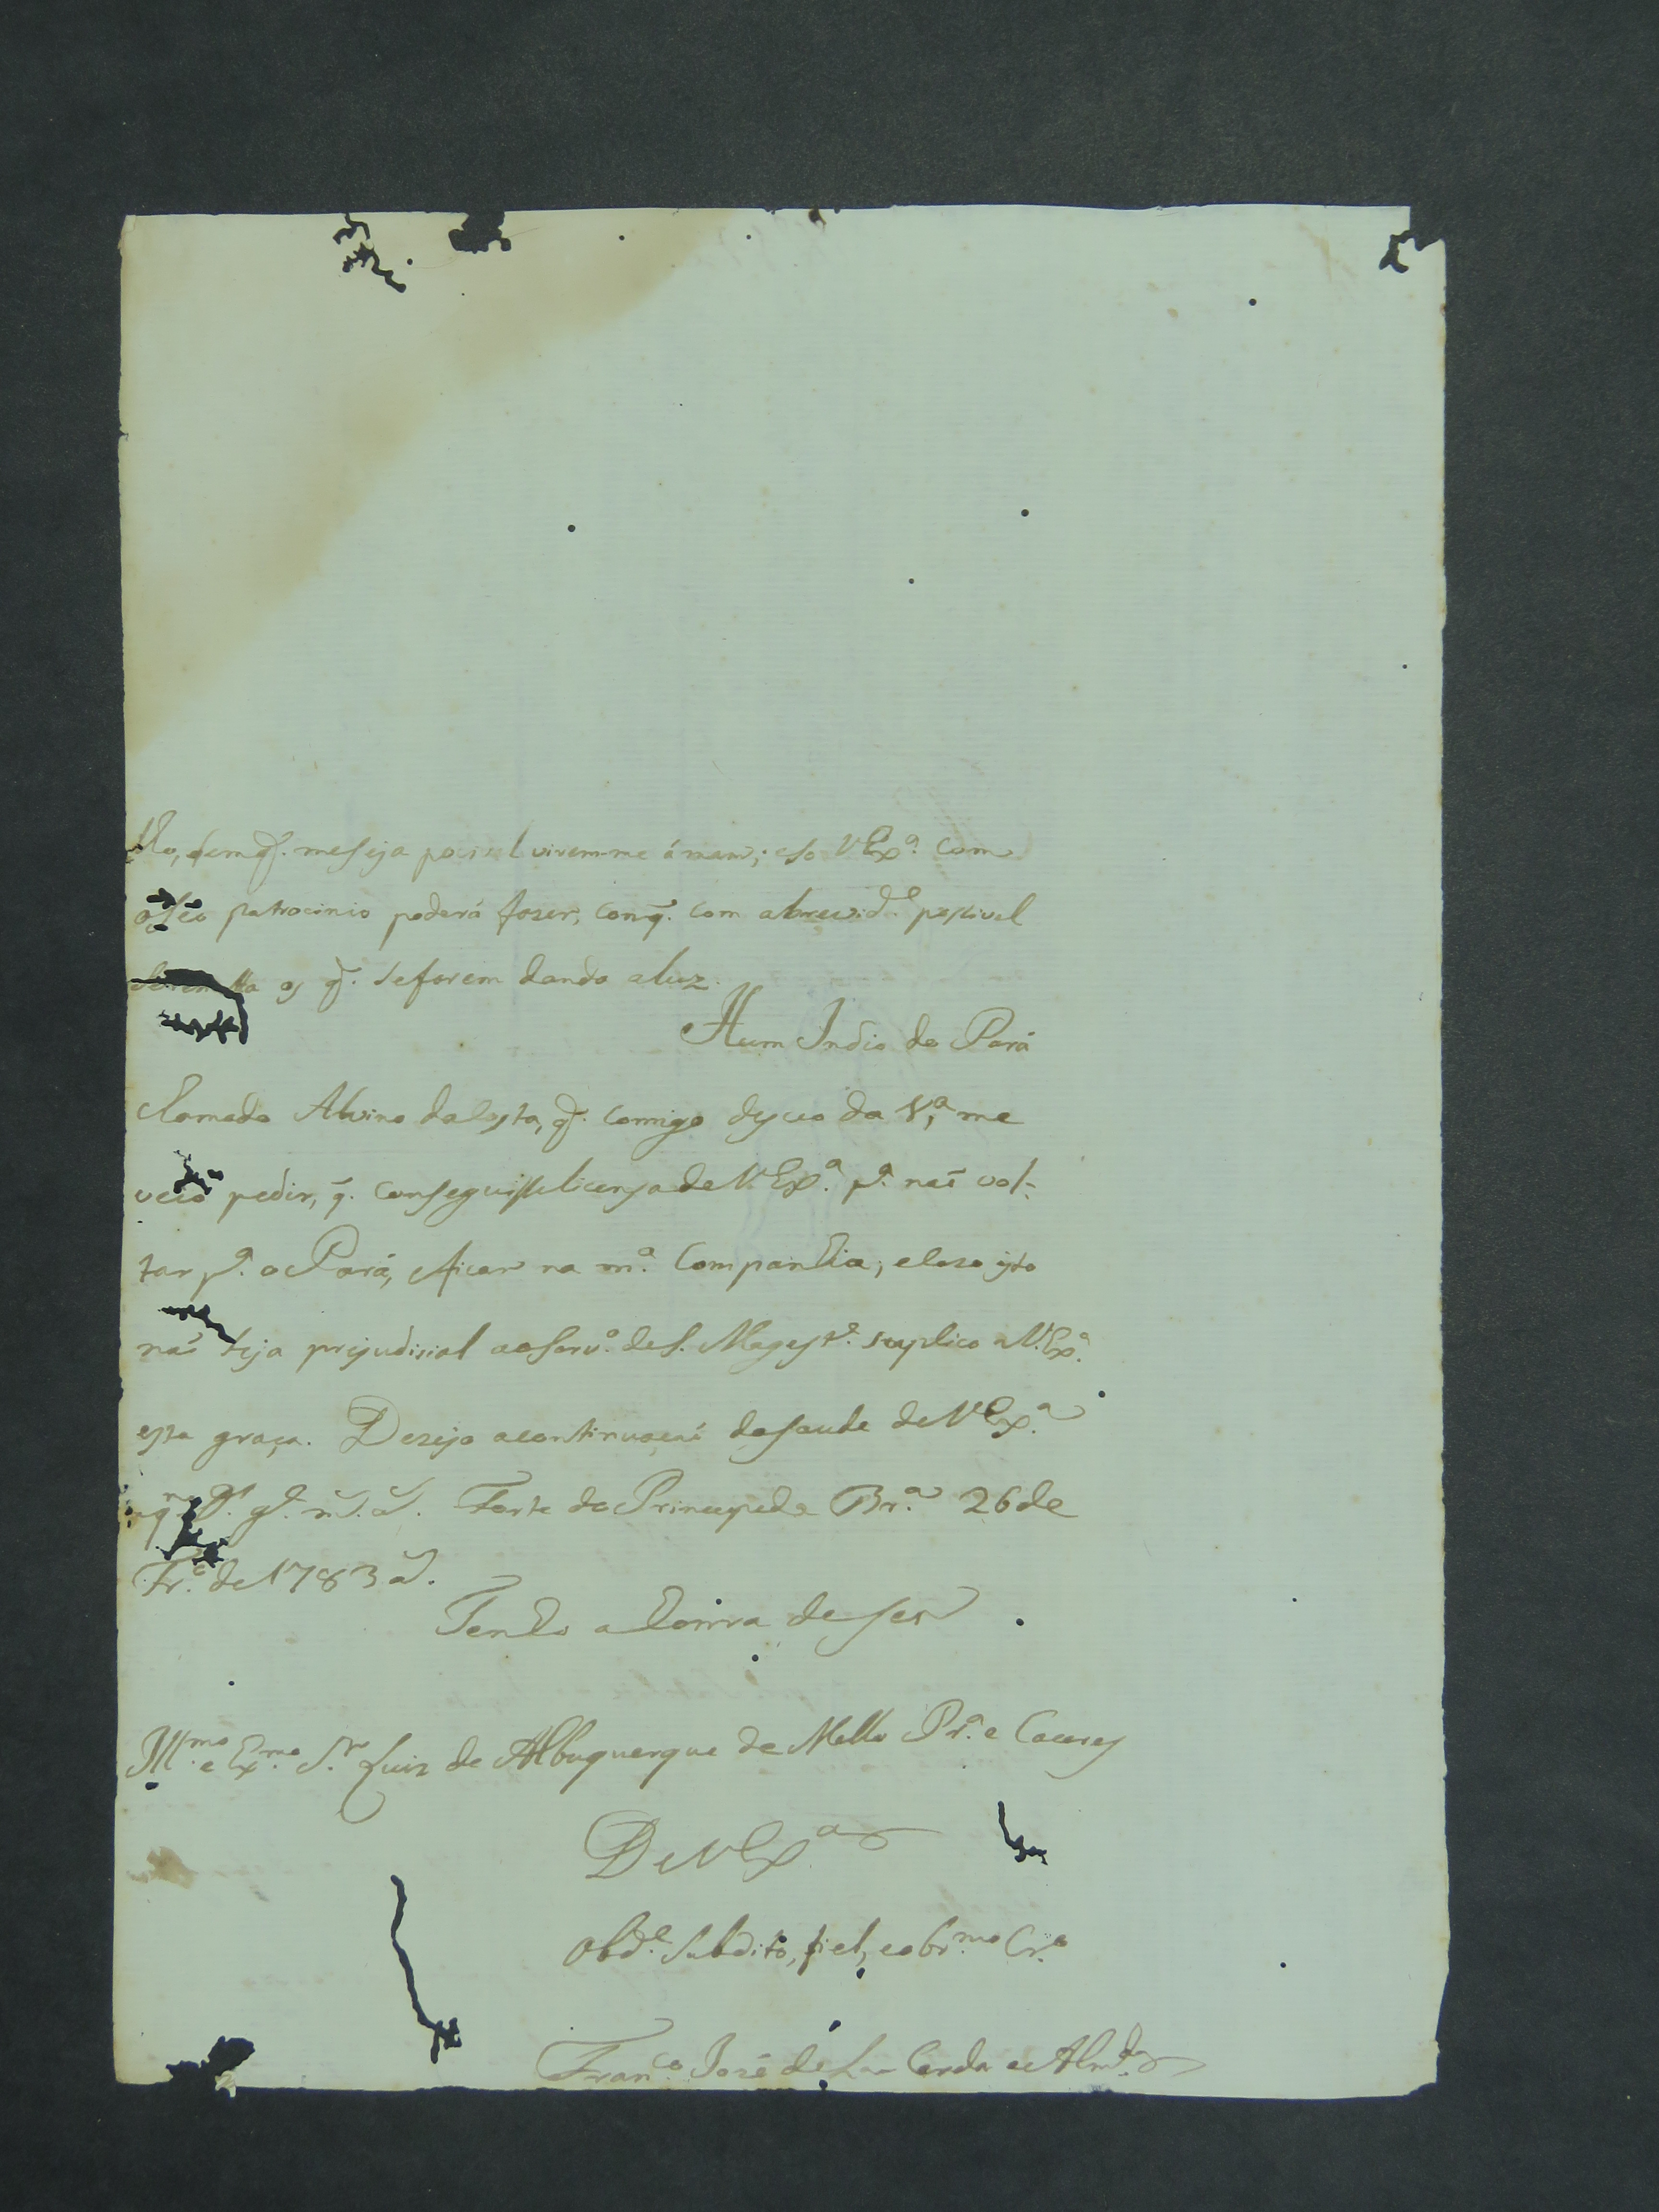 llo, sem q̃. me seja pocivel virem-me á mam; e so V Ex.ª com
o seo patrocinio poderá fazer, con q̃. com a brevid.e possivel
os q̃. se forem dando a luz.
Hum Indio do Pará
chamado Alvino da Costa, q̃. comigo desceo da V.ª me
veio pedir, q̃. conseguisse licensa de V. Ex.ª p.ª naó vol-
tar p.ª o Pará, e ficar na m.ª Companhia; e cazo isto
naó seja prejudisial ao Serv.º de S. Magest.e suplico a V. Ex.ª
esta graça. Dezejo a continuacaó da saude de V Ex.ª
q̃ D.s g.e m.s a.s Forte do Principe da Br.ª 26 de
Fr.º de 1783 a.
Tenho a honra de ser
Ill.mo e Ex.mo S.r Luiz de Albuquerque de Mello Pr.ª e Caceres
De V Ex.ª
Obd.e Subdito, fiel, e obr.mo Cr.º
Fran.co José de La Cerda e Alm.da